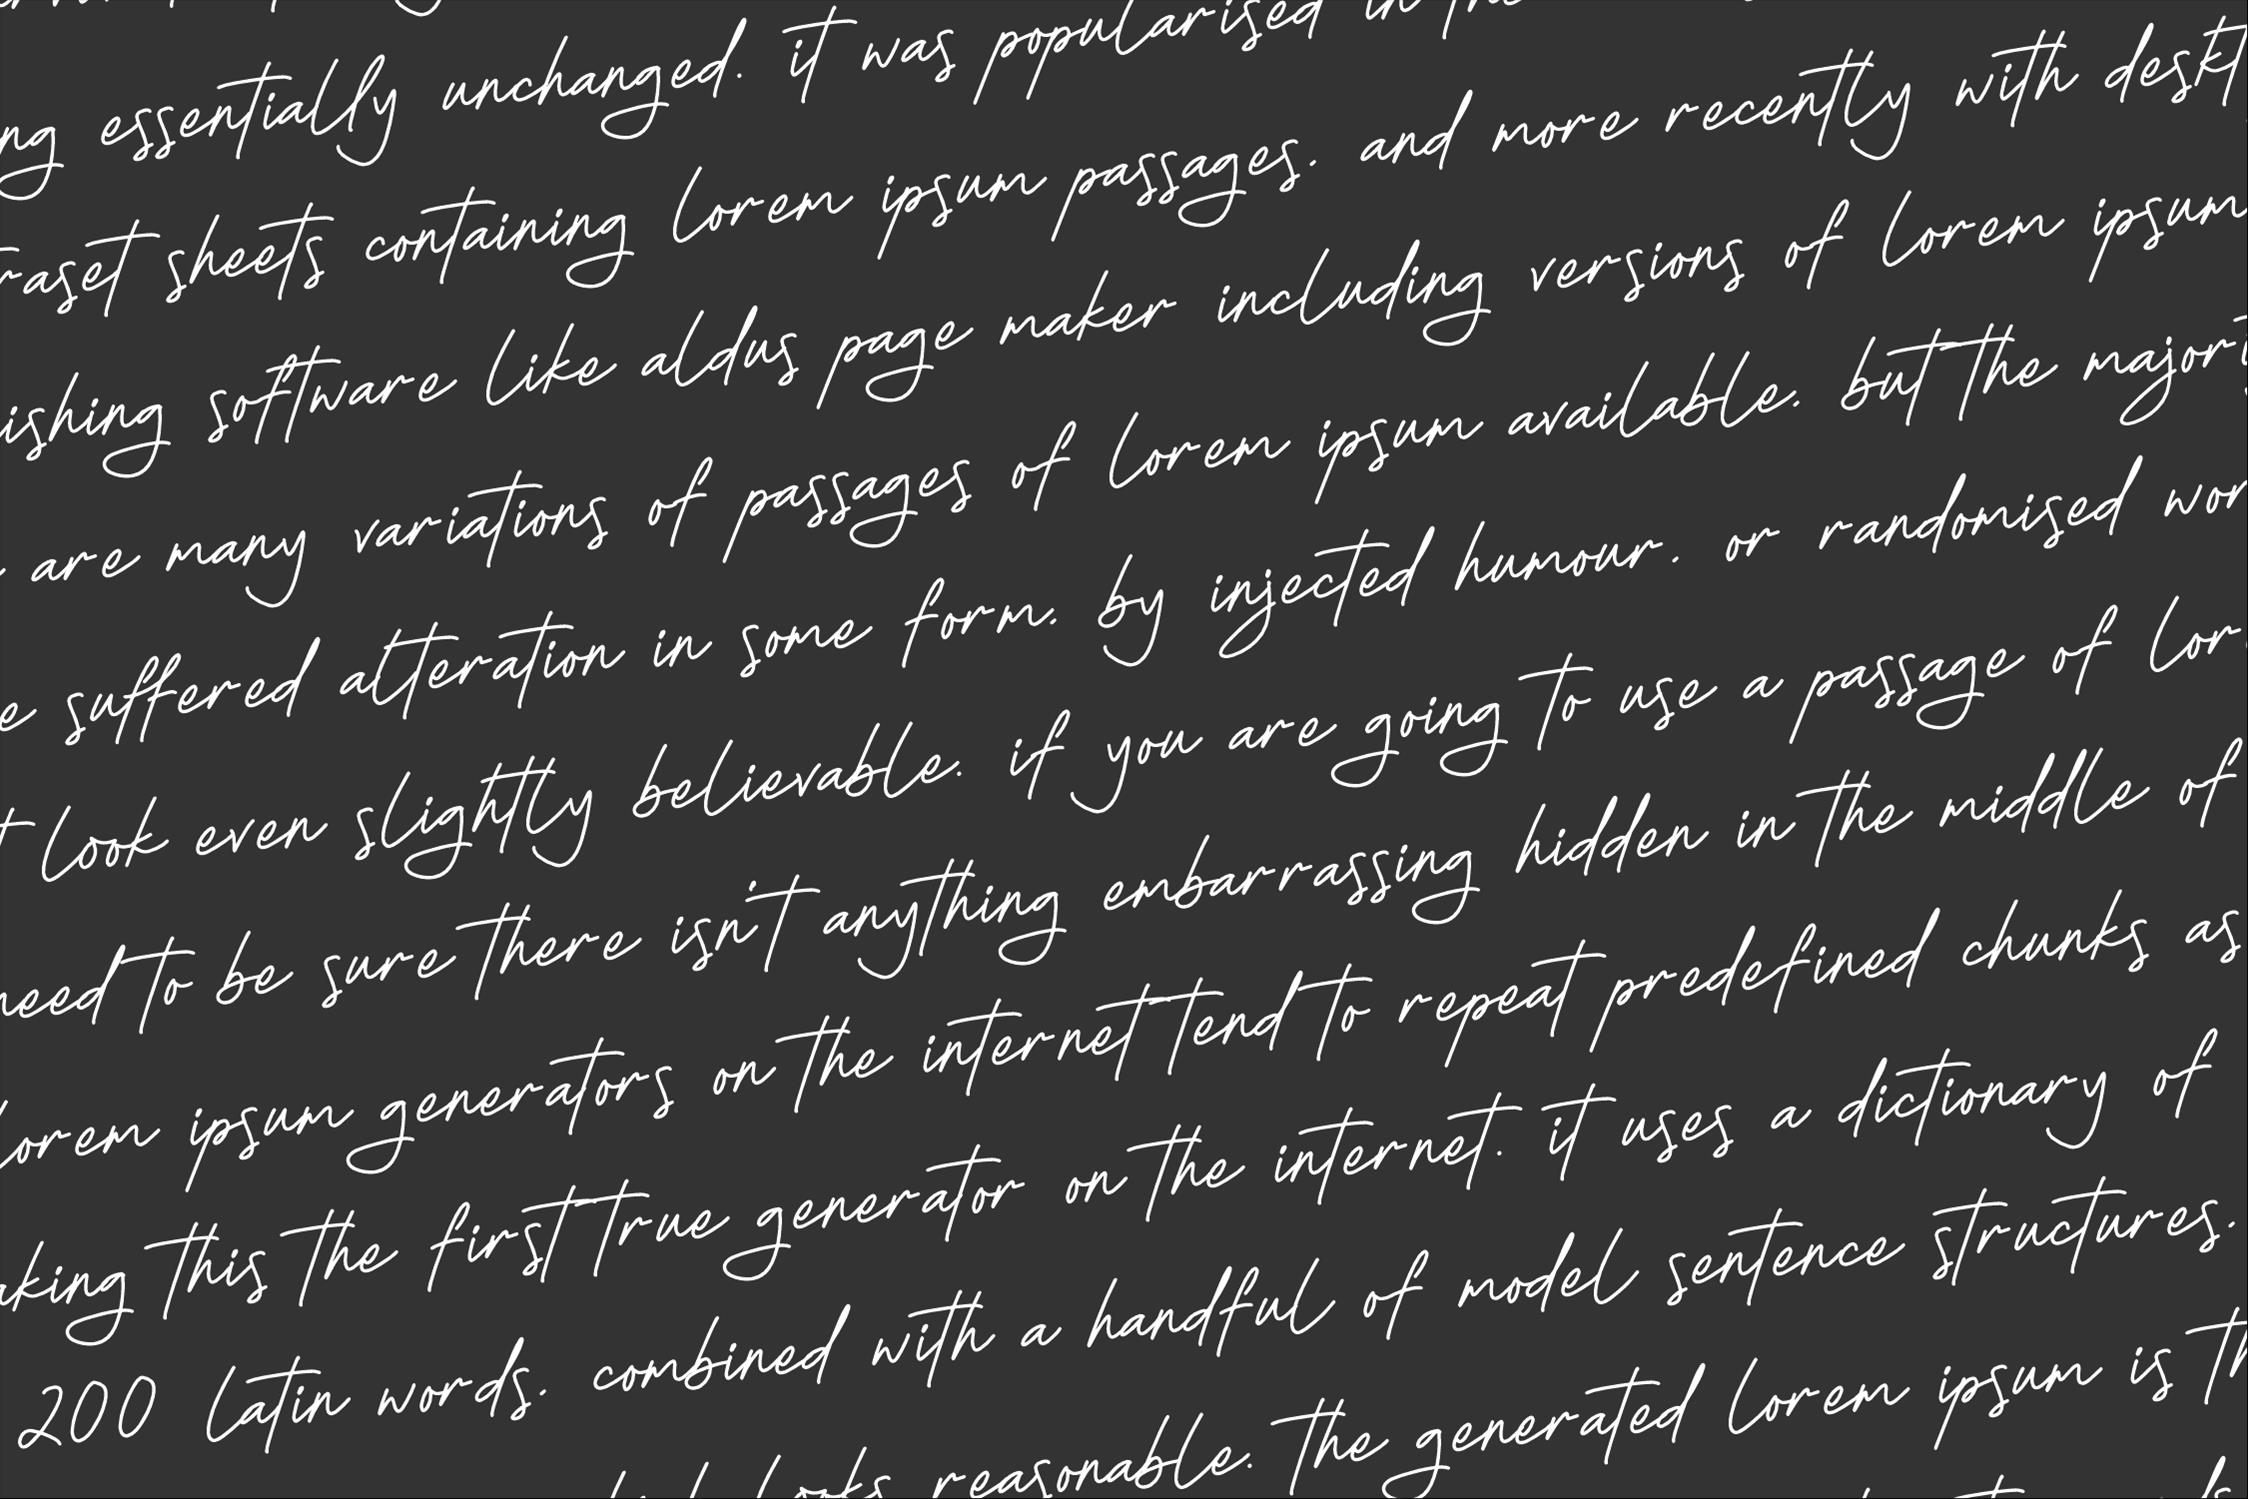 ng essentially unchanged. it was popularised in the
raset sheets containing lorem ipsum passages. and more recently with deskt
ishing software like aldus page maker including versions of lorem ipsum
are many variations of passages of lorem ipsum available. but the majorit
e suffered alteration in some form. by injected humour. or randomised wor
t look even slightly believable. if you are going to use a passage of lor
need to be sure there isn't anything embarrassing hidden in the middle of
lorem ipsum generators on the internet tend to repeat predefined chunks as
aking this the first true generator on the internet. it uses a dictionary of
200 latin words. combined with a handful of model sentence structures.
looks reasonable. the generated lorem ipsum is th